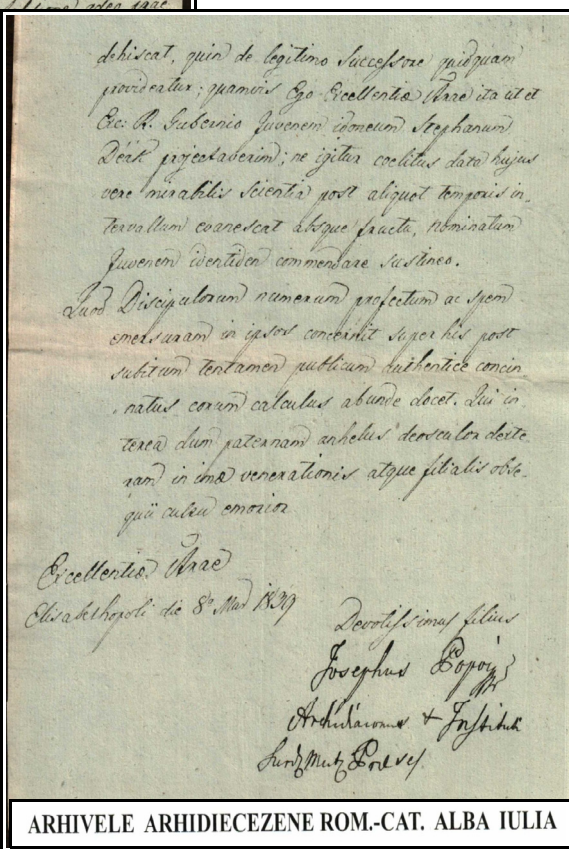 dehiscat, quin de legitimo Successore quidquam
provideatur; quamvis Ego Excellentiæ Vrae ita ut et
Exc: R. Gubernio Juvenem idoneum Stephanum
Deák projectaverim; ne igitur coelitus data hujus
vere mirabilis Scientia post aliquot temporis in-
tervallum evanescat absque fructu, nominatum
Juvenem identidem commendare sustineo.
Quod Discipulorum numerum profectum ac spem
emersuram in ipsos concernit super his post
subitum tentamen publicum authentice concin
natus eorum calculus abunde docet. Qui in-
terea dum paternam anhelus deosculor dexte
ram in imæ venerationis atque filialis obse-
quii cultu emorior
Excellentiæ Vrae
Elisabethopoli die 8a 1839
Devotissimus filius
Josephus
Archidiaconus & Instituti
Surdo
ARHIVELE ARHIDIECEZENE ROM.-CAT. ALBA IULIA